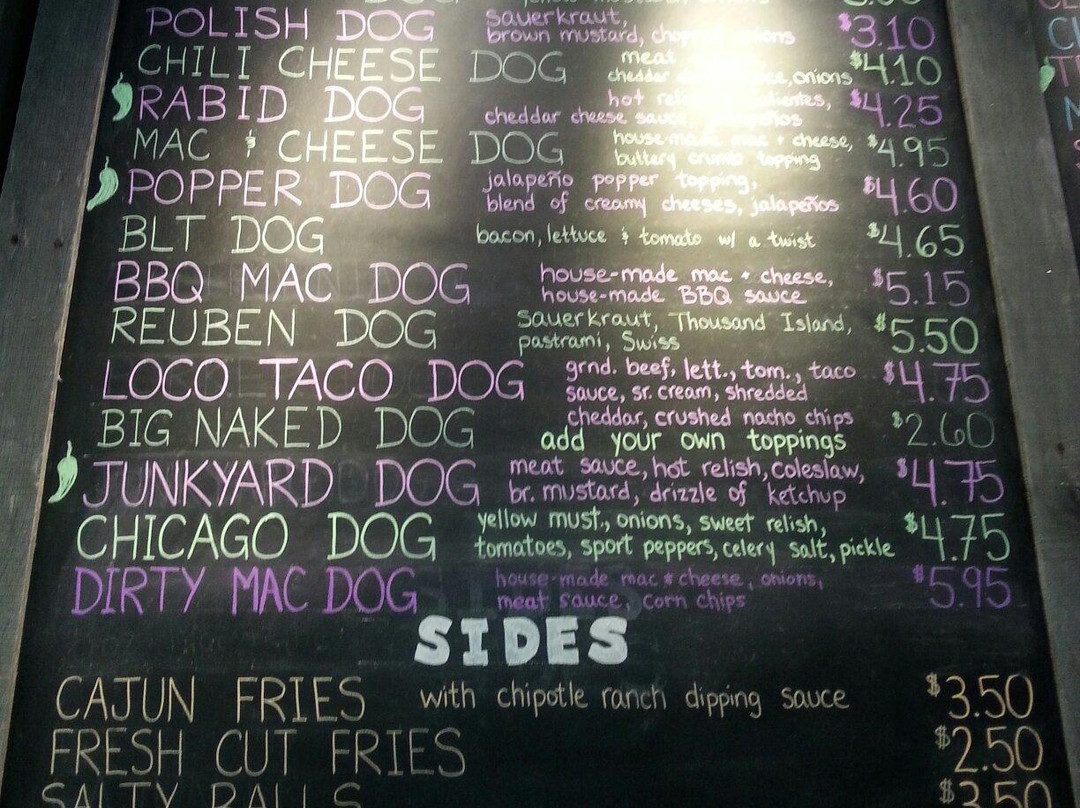 DOG
POLISH DOG sauerkraut, $3.10
brown mustard, chopped onions
CHILI CHEESE DOG meat $4.10
cheddar onions
RABID DOG hot $4.25
cheddar cheese
MAC & CHEESE DOG house-made mac + cheese, $4.95
buttery crumb topping
POPPER DOG jalapeño popper topping, $4.60
blend of creamy cheeses, jalapeños
BLT DOG bacon, lettuce & tomato w/ a twist $4.65
BBQ MAC DOG house-made mac + cheese, $5.15
house-made BBQ sauce
REUBEN DOG sauerkraut, Thousand Island, $5.50
pastrami, Swiss
LOCO TACO DOG grnd. beef, lett., tom., taco $4.75
sauce, sr. cream, shredded
cheddar, crushed nacho chips
BIG NAKED DOG add your own toppings $2.60
JUNKYARD DOG meat sauce, hot relish, coleslaw, $4.75
br. mustard, drizzle of ketchup
CHICAGO DOG yellow must., onions, sweet relish, $4.75
tomatoes, sport peppers, celery salt, pickle
DIRTY MAC DOG house-made mac & cheese, onions, $5.95
meat sauce, corn chips
SIDES
CAJUN FRIES with chipotle ranch dipping sauce $3.50
FRESH CUT FRIES $2.50
SALTY BALLS $3.50